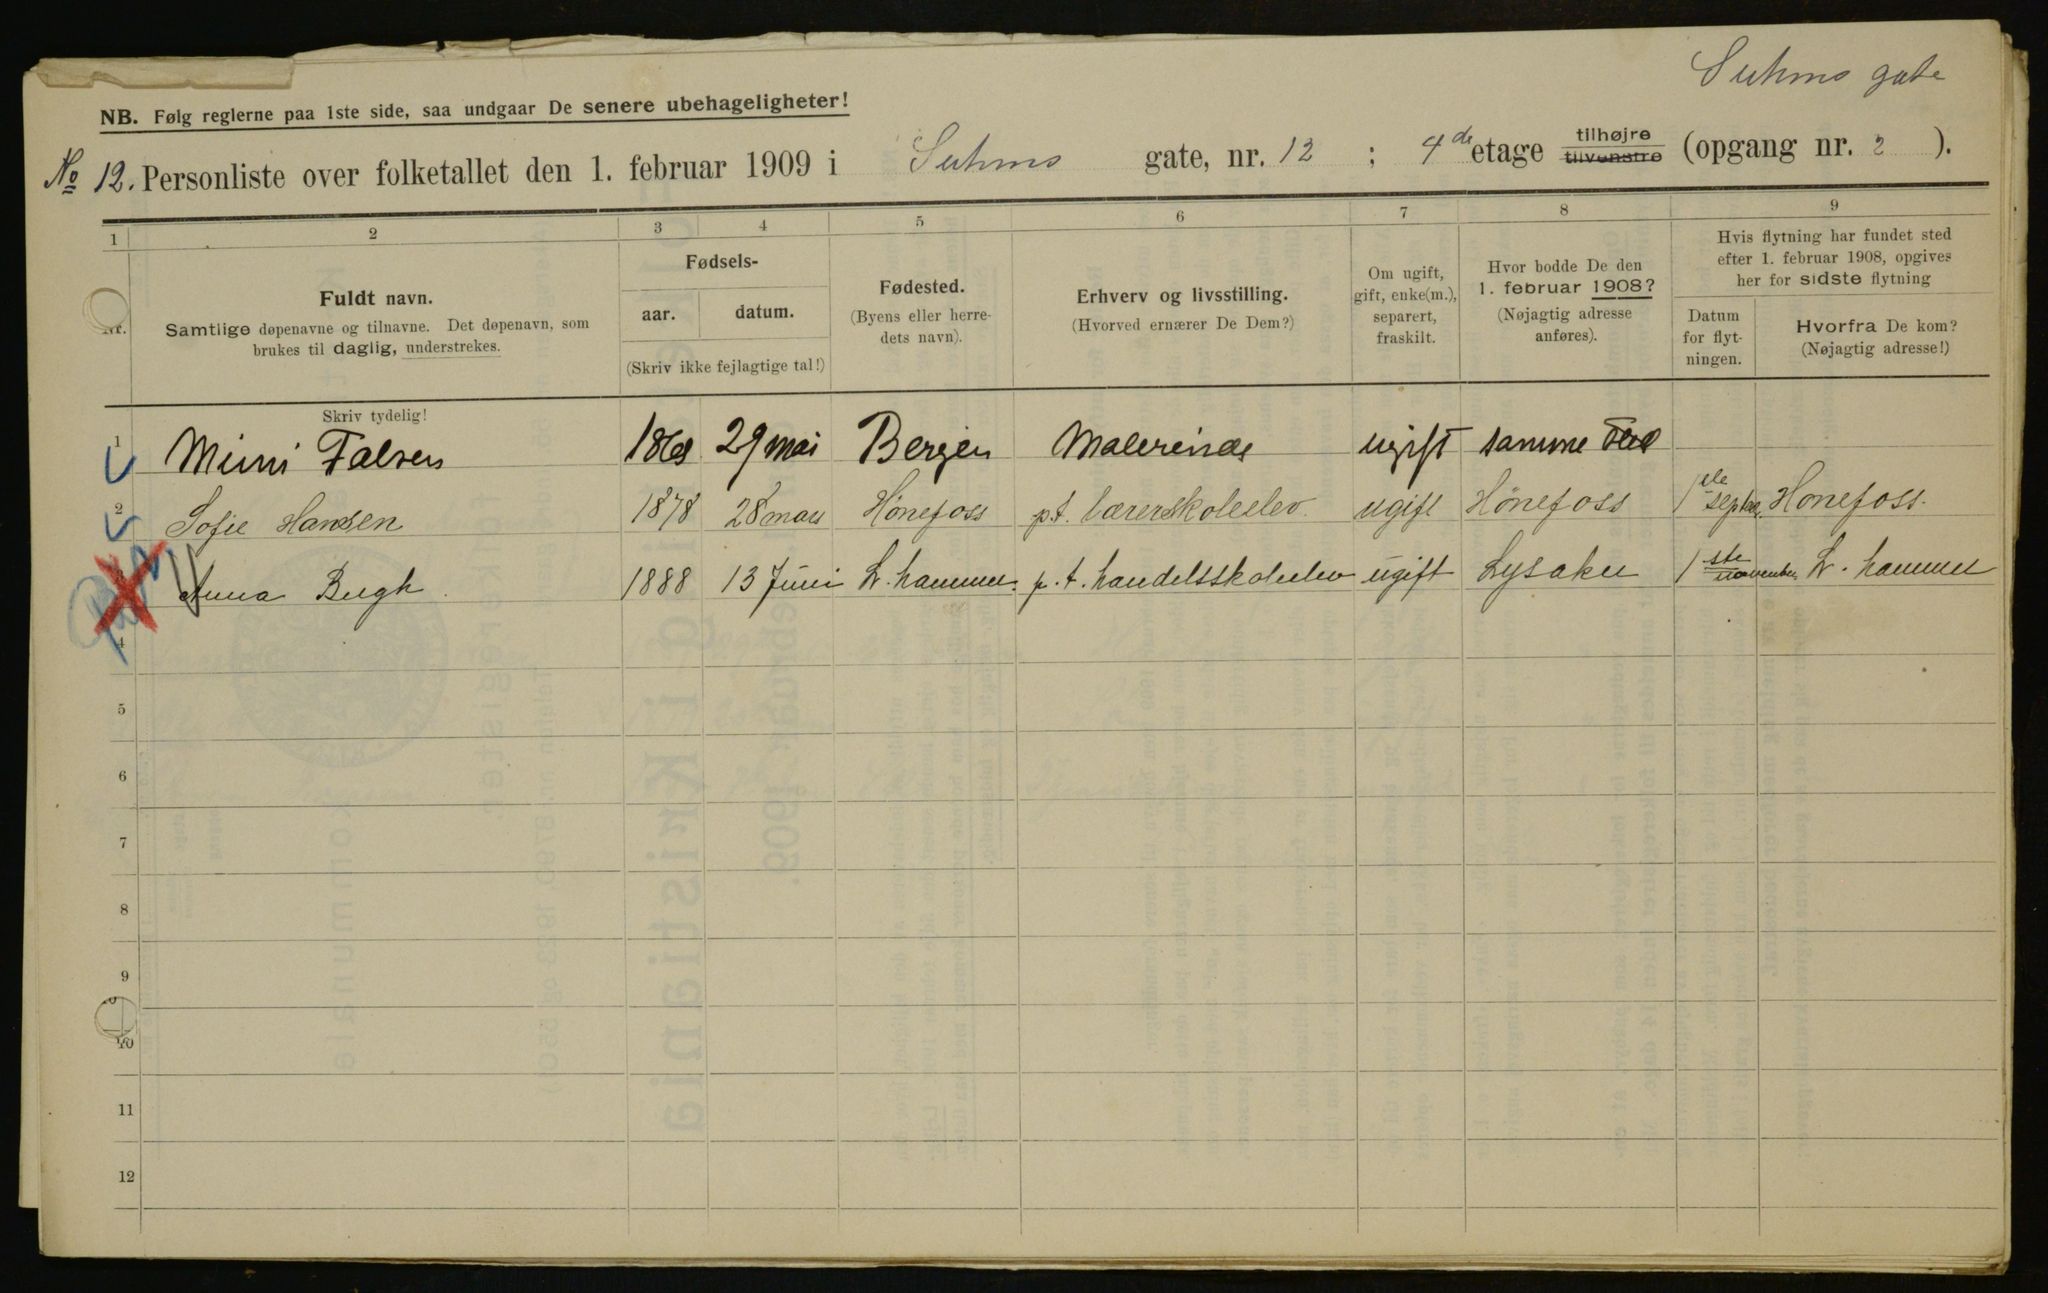 Suhms gate
NB. Følg reglerne paa 1ste side, saa undgaar De senere ubehageligheter!
No 12. Personliste over folketallet den 1. februar 1909 i Suhms gate, nr. 12 ; 4de etage tilhøjre tilvenstre (opgang nr. 2 ).
1 2 3 4 5 6 7 8 9
Nr.
Fuldt navn.
Samtlige døpenavne og tilnavne. Det døpenavn, som
brukes til daglig, understrekes.
Fødsels-
aar. datum.
(Skriv ikke fejlagtige tal!)
Fødested.
(Byens eller herre-
dets navn).
Erhverv og livsstilling.
(Hvorved ernærer De Dem?)
Om ugift,
gift, enke(m.),
separert,
fraskilt.
Hvor bodde De den
1. februar 1908?
(Nøjagtig adresse
anføres).
Hvis flytning har fundet sted
efter 1. februar 1908, opgives
her for sidste flytning
Datum
for flyt-
ningen.
Hvorfra De kom?
(Nøjagtig adresse!)
Skriv tydelig!
1 Mimi Falsen 1861 29 mai Bergen Malerinde ugift samme sted
2 Sofie Hansen 1878 28 mars Hönefoss p.t. lærerskoleelev ugift Hönefoss 1ste septbr. Hönefoss.
3 Anna Bugh 1888 13 Juni L. hammer. p. t. handelsskoleelev ugift Lysaker 1ste november L. hammer
4
5
6
7
8
9
10
11
12